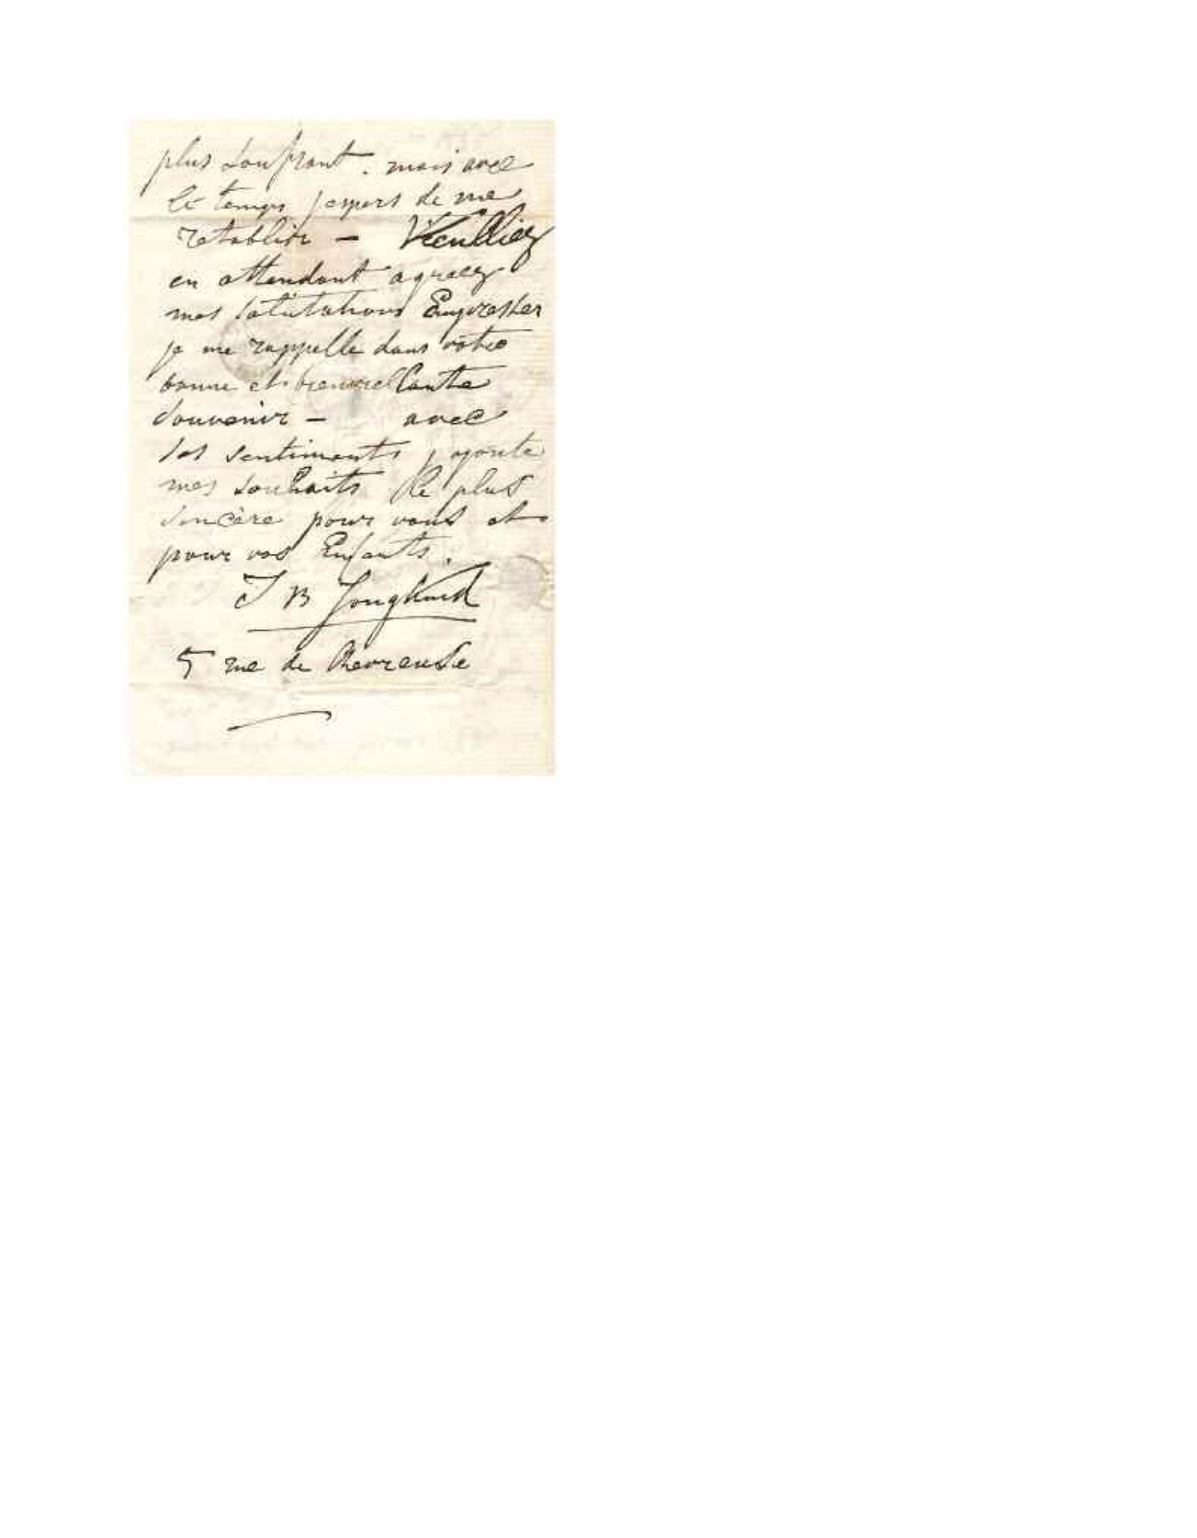 plus soufrant. mais avec
le temps j espers de me
retablir – Veuilliez
en attendant agreez
mes salutations Empresser
je me rappelle dans votre
bonne et bienveillante
souvenir – avec
ses sentiments j ajoute
mes souhaits le plus
sincère pour vous et
pour vos Enfants.
J B Jongkind
5 rue de Chevreuse